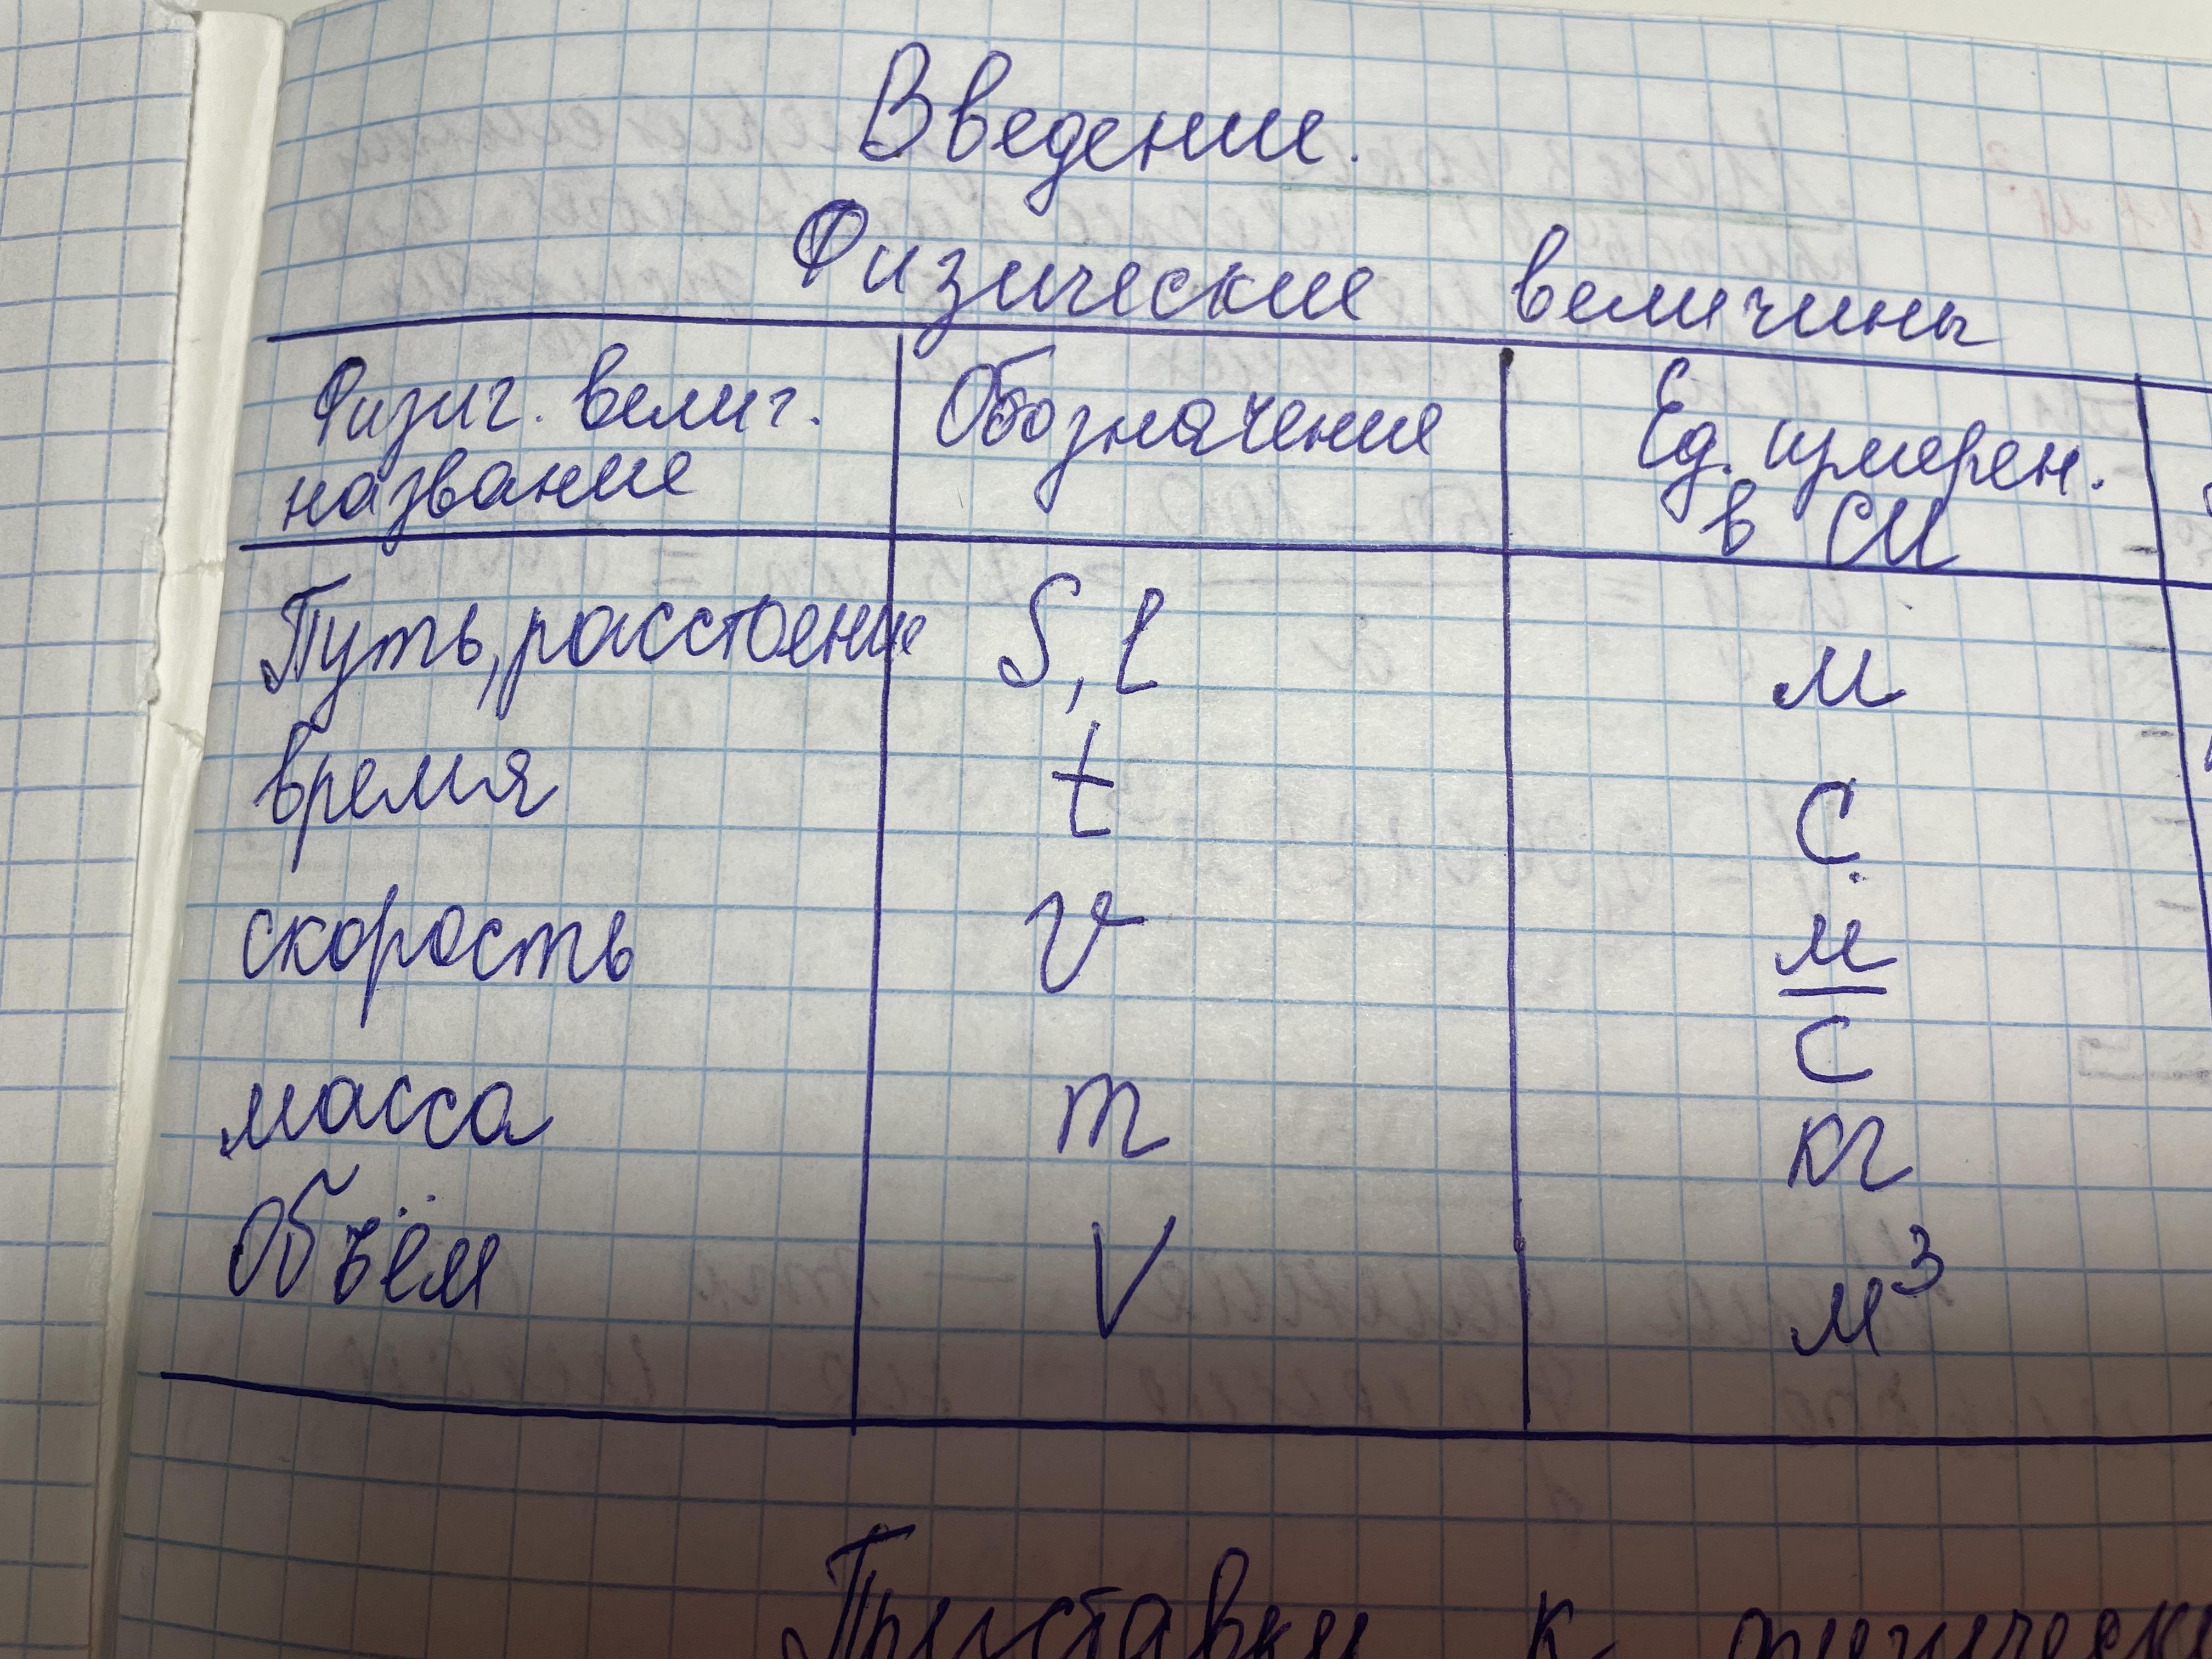 Введение.
Физические величины
Физич. велич. Обозначение Ед. измерен.
название в СИ
Путь, расстоение S, l м
время t с
скорость v м/с
масса m кг
Объём V м³
Приставки к физически